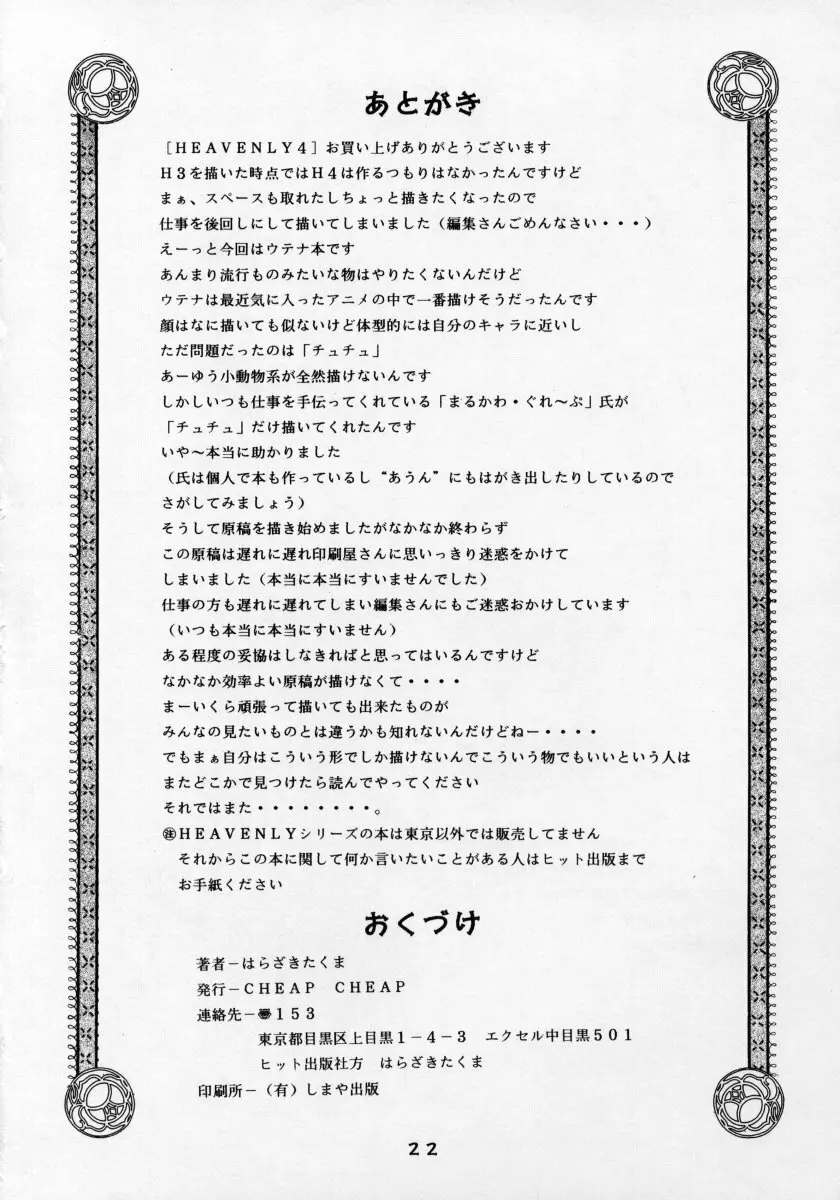 あとがき
[HEAVENLY4]お買い上げありがとうございます
H3を描いた時点ではH4は作るつもりはなかったんですけど
まぁ、スペースも取れたしちょっと描きたくなったので
仕事を後回しにして描いてしまいました(編集さんごめんなさい・・・)
えーっと今回はウテナ本です
あんまり流行ものみたいな物はやりたくないんだけど
ウテナは最近気に入ったアニメの中で一番描けそうだったんです
顔はなに描いても似ないけど体型的には自分のキャラに近いし
ただ問題だったのは「チュチュ」
あーゆう小動物系が全然描けないんです
しかしいつも仕事を手伝ってくれている「まるかわ・ぐれ〜ぷ」氏が
「チュチュ」だけ描いてくれたんです
いや〜本当に助かりました
(氏は個人で本も作っているし“あうん”にもはがき出したりしているので
さがしてみましょう)
そうして原稿を描き始めましたがなかなか終わらず
この原稿は遅れに遅れ印刷屋さんに思いっきり迷惑をかけて
しまいました(本当に本当にすいませんでした)
仕事の方も遅れに遅れてしまい編集さんにもご迷惑おかけしています
(いつも本当に本当にすいません)
ある程度の妥協はしなきればと思ってはいるんですけど
なかなか効率よい原稿が描けなくて・・・・
まーいくら頑張って描いても出来たものが
みんなの見たいものとは違うかも知れないんだけどねー・・・・
でもまぁ自分はこういう形でしか描けないんでこういう物でもいいという人は
またどこかで見つけたら読んでやってください
それではまた・・・・・・・・。
㊟HEAVENLYシリーズの本は東京以外では販売してません
それからこの本に関して何か言いたいことがある人はヒット出版まで
お手紙ください
おくづけ
著者－はらざきたくま
発行－CHEAP CHEAP
連絡先－〠153
東京都目黒区上目黒1－4－3 エクセル中目黒501
ヒット出版社方 はらざきたくま
印刷所－(有)しまや出版
22